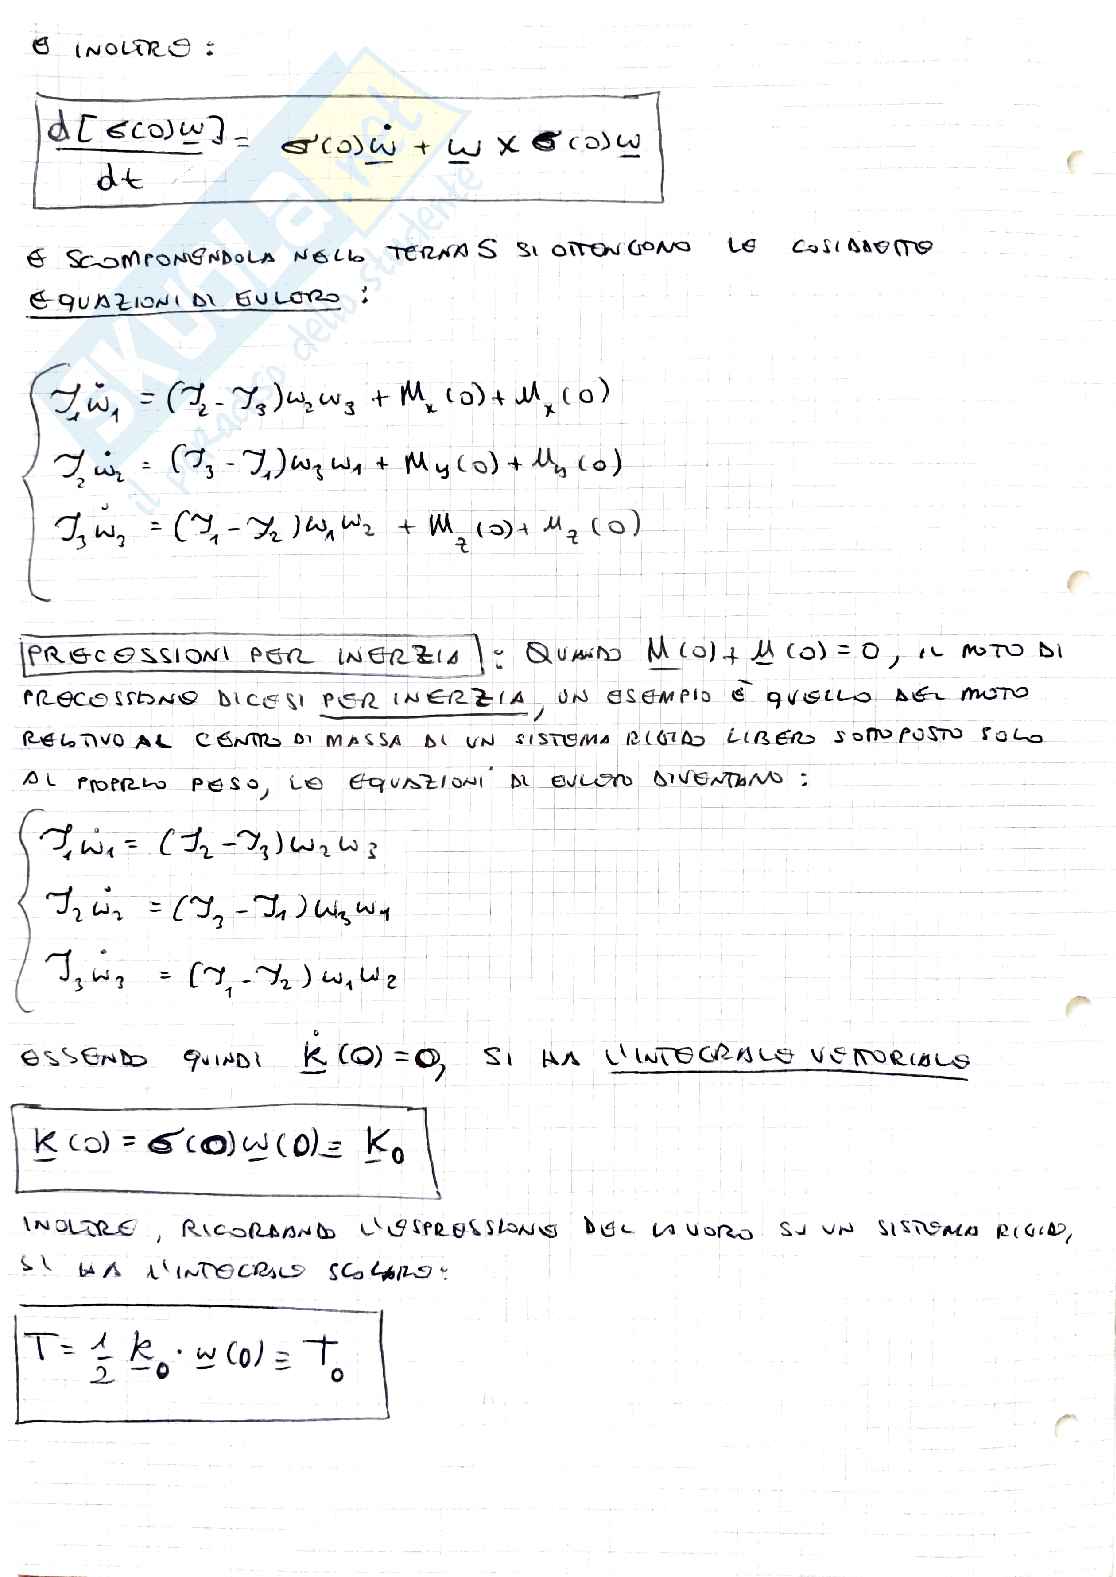 E INOLTRE:
d[σ(O)ω]/dt = σ(O)ω̇ + ω × σ(O)ω
E SCOMPONENDOLA NELLA TERNA S SI OTTENGONO LE COSIDDETTE
EQUAZIONI DI EULERO:
J₁ω̇₁ = (J₂ - J₃)ω₂ω₃ + Mₓ(O) + μₓ(O)
J₂ω̇₂ = (J₃ - J₁)ω₃ω₁ + My(O) + μy(O)
J₃ω̇₃ = (J₁ - J₂)ω₁ω₂ + Mz(O) + μz(O)
PRECESSIONI PER INERZIA: QUANDO M(O) + μ(O) = 0, IL MOTO DI
PRECESSIONE DICESI PER INERZIA, UN ESEMPIO È QUELLO DEL MOTO
RELATIVO AL CENTRO DI MASSA DI UN SISTEMA RIGIDO LIBERO SOTTOPOSTO SOLO
AL PROPRIO PESO, LE EQUAZIONI DI EULERO DIVENTANO:
J₁ω̇₁ = (J₂ - J₃)ω₂ω₃
J₂ω̇₂ = (J₃ - J₁)ω₃ω₁
J₃ω̇₃ = (J₁ - J₂)ω₁ω₂
ESSENDO QUINDI K̇(O) = 0, SI HA L'INTEGRALE VETTORIALE
K(O) = σ(O)ω(O) ≡ K₀
INOLTRE, RICORDANDO L'ESPRESSIONE DEL LAVORO SU UN SISTEMA RIGIDO,
SI HA L'INTEGRALE SCALARE:
T = 1/2 K₀ · ω(O) ≡ T₀
SKUOLA.net
il paradiso dello studente